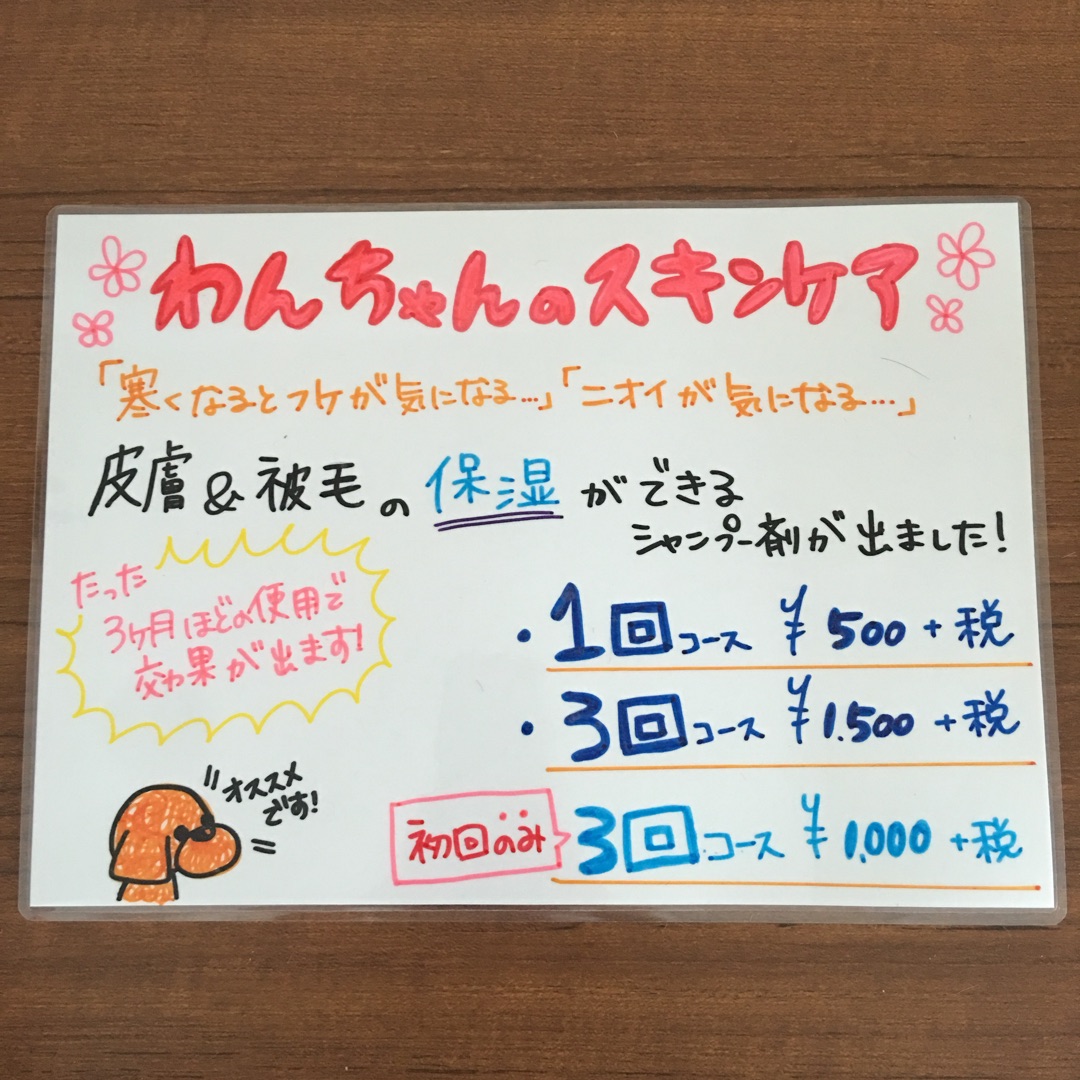 わんちゃんのスキンケア
「寒くなるとフケが気になる…」「ニオイが気になる…」
皮膚&被毛の保湿ができる
シャンプー剤が出ました!
たった
3ヶ月ほどの使用で
効果が出ます!
・1回コース ¥500+税
・3回コース ¥1.500+税
初回のみ 3回コース ¥1,000+税
オススメ
です!